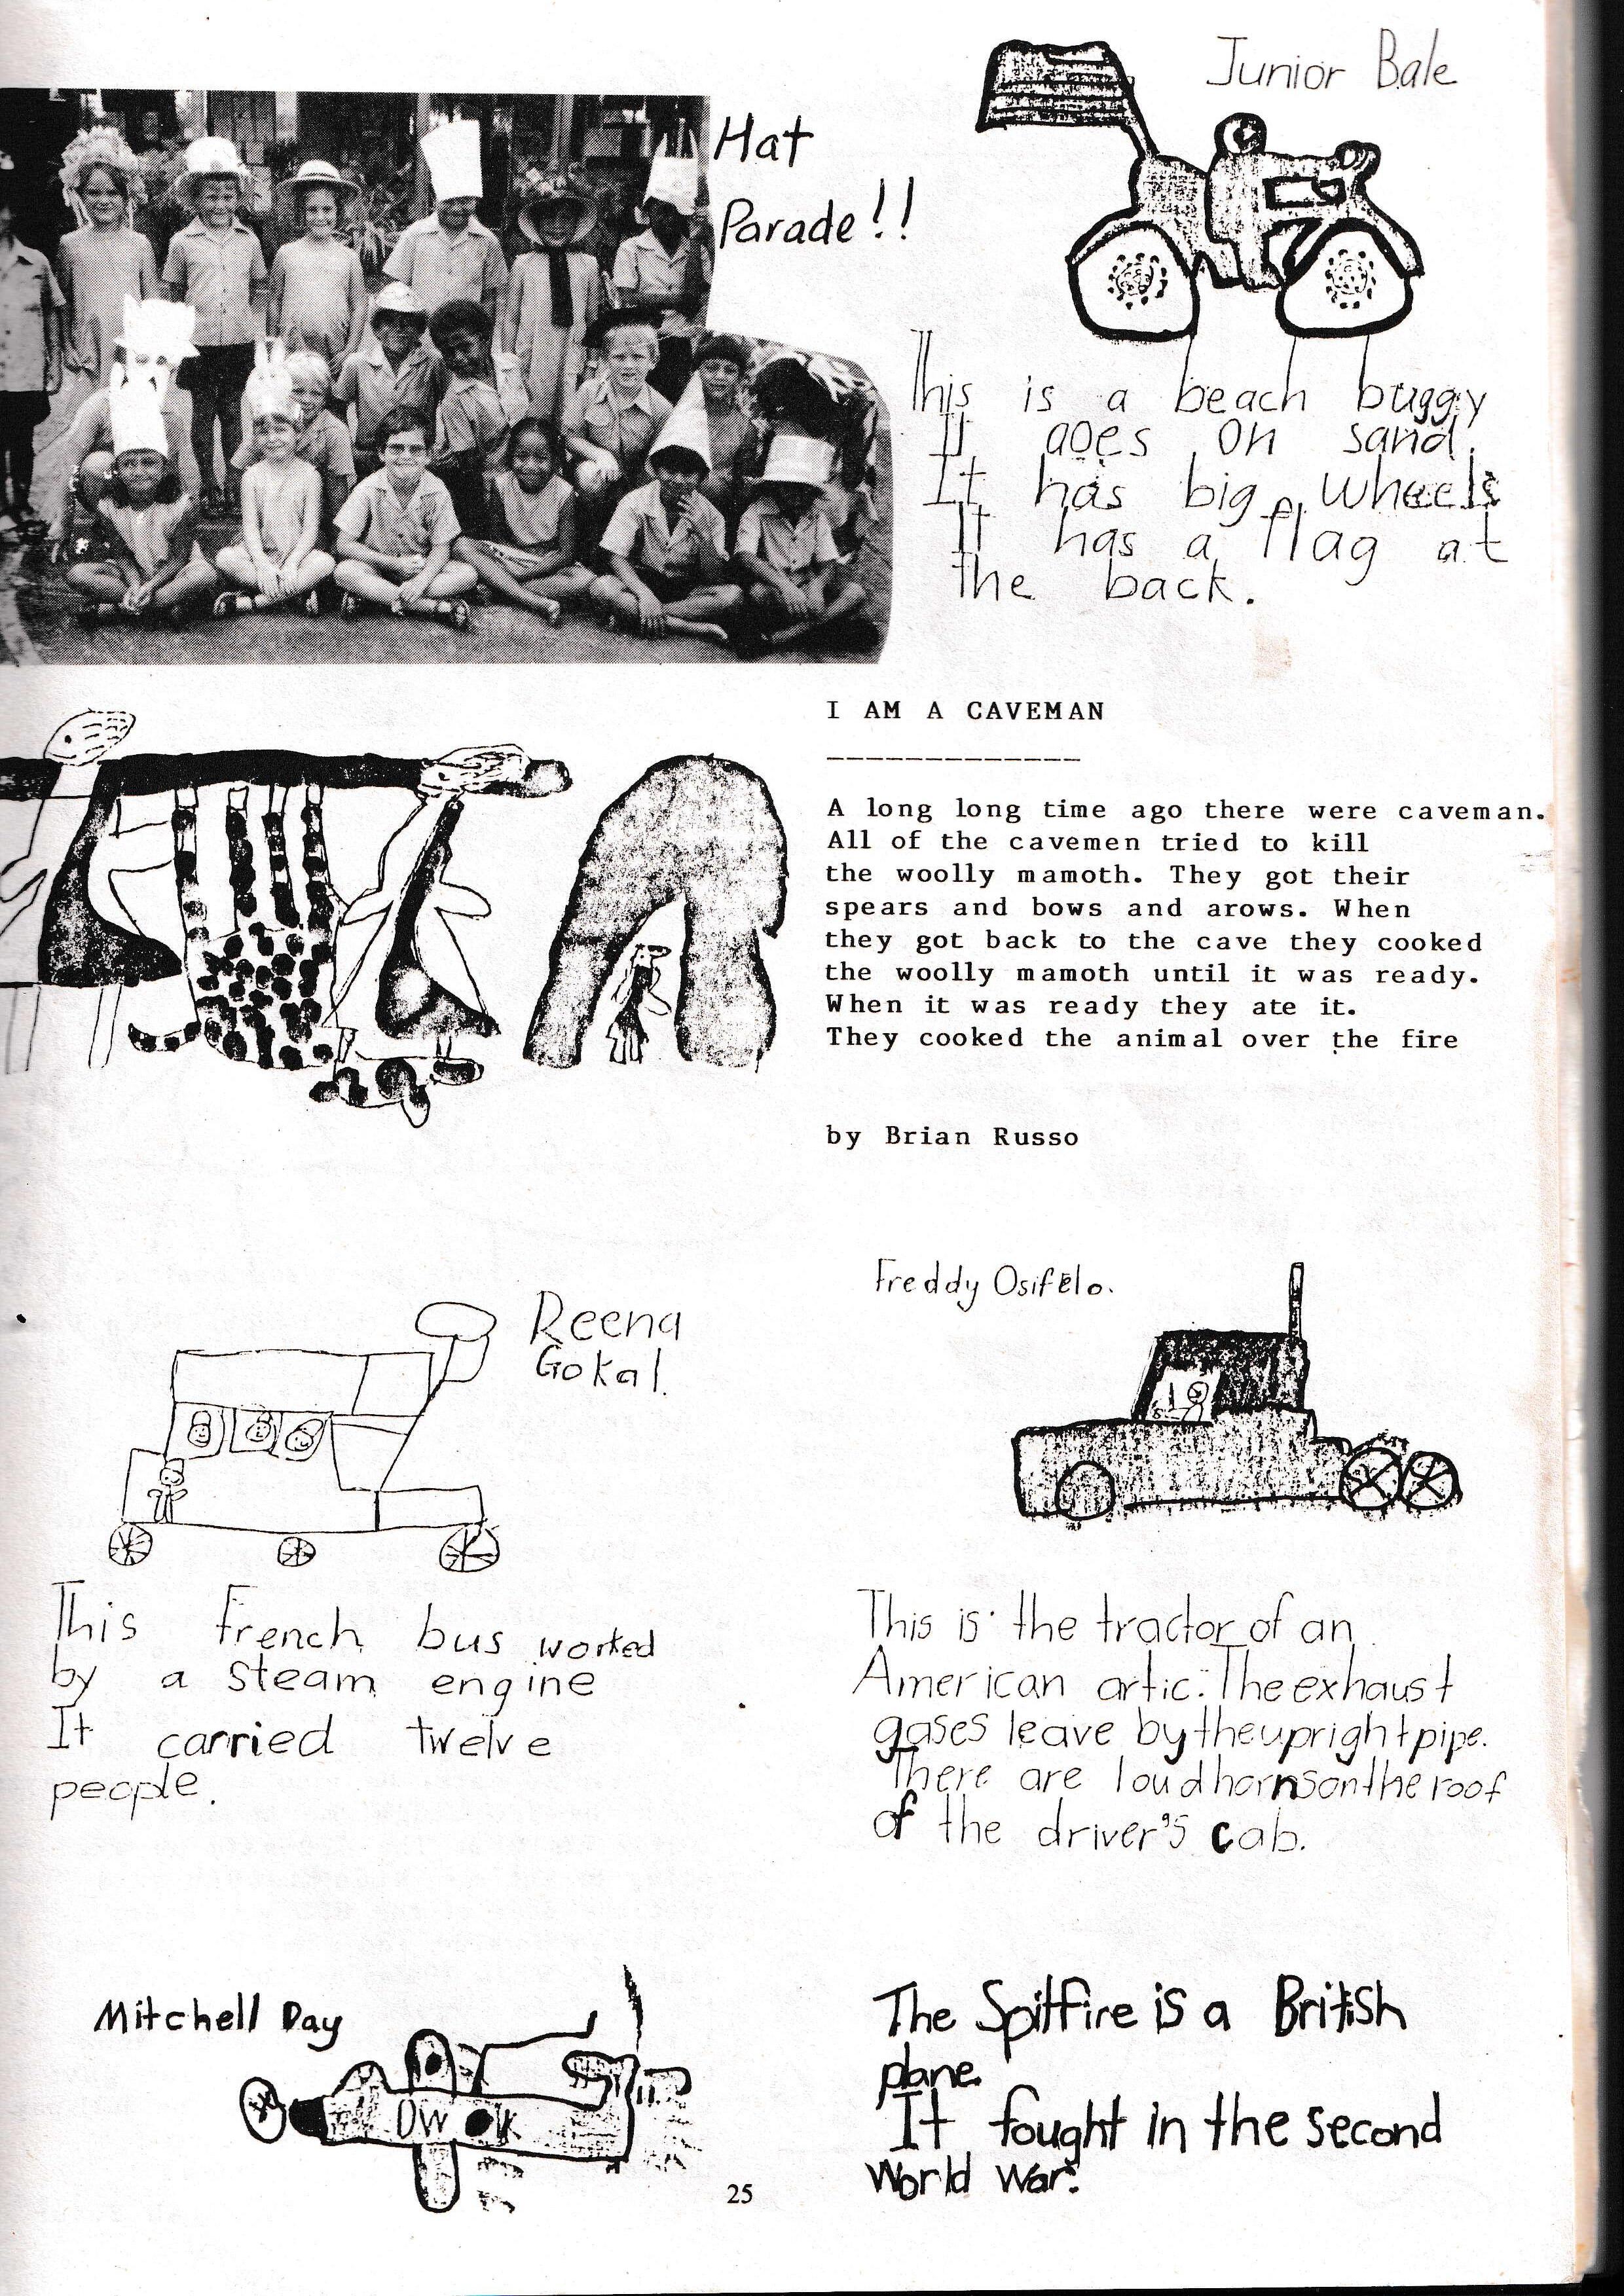 Hat
Parade!!
Junior Bale
This is a beach buggy
It goes on sand.
It has big wheels
It has a flag at
the back.
I AM A CAVEMAN
-------------
A long long time ago there were caveman.
All of the cavemen tried to kill
the woolly mamoth. They got their
spears and bows and arows. When
they got back to the cave they cooked
the woolly mamoth until it was ready.
When it was ready they ate it.
They cooked the animal over the fire
by Brian Russo
Reena
Gokal.
This French bus worked
by a steam engine
It carried twelve
people.
Freddy Osifelo.
This is the tractor of an
American artic. The exhaust
gases leave by the upright pipe.
There are loud horns on the roof
of the driver's cab.
Mitchell Day
DW K
The Spitfire is a British
plane.
It fought in the second
world war.
25